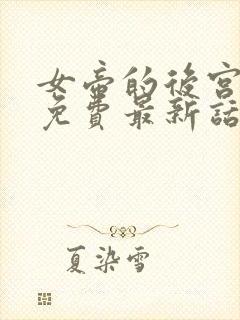 女帝的後宮
免費最新話
夏染雪